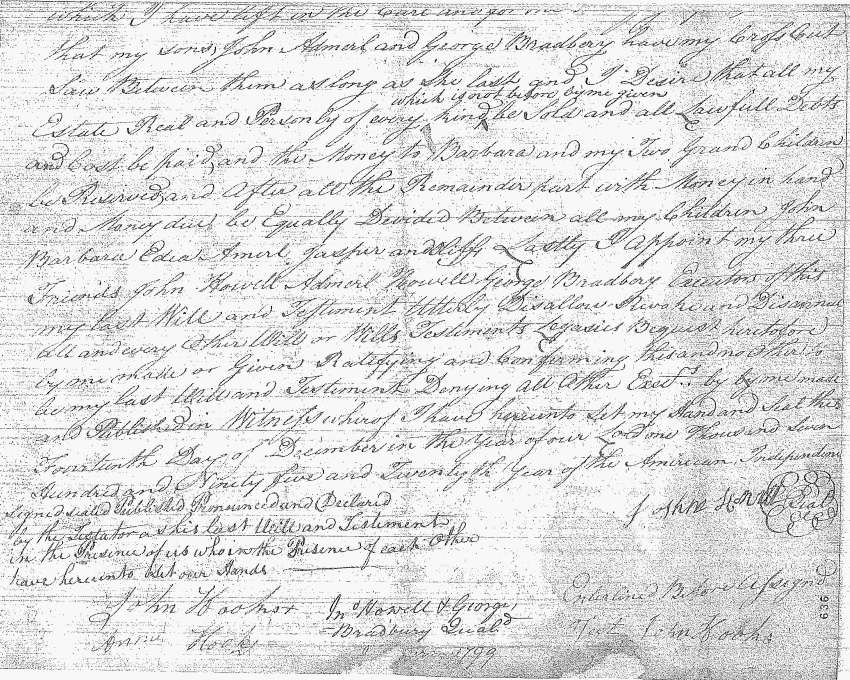 which I have left in the Care and for
that my sons John Admerl and George Bradbery have my Cross Cut
Saw Between them as long as She last and I Desire that all my
which is not before by me given
Estate Real and Personly of every kind be Sold and all Lawfull Debts
and Cost be paid and the Money to Barbara and my Two Grand Children
be Reserved and After all the Remainder part with Money in hand
and Money due be Equally Devided Between all my Children John
Barbara Edea Amerl Jasper and Lastly I appoint my three
Friends John Howell Admerl Howell George Bradbery Executors of this
my last Will and Testiment Utterly Disallow Revoke and Disannul
all and every Other Will or Wills Testiments Legasies Bequest heretofore
by me made or Given Ratifying and Confirming this and no Other to
be my last Will and Testiment Denying All Other Exets. by by me made
and Published in Witness wherof I have hereunto Set my Hand and Seal this
Fourteenth Day of December in the Year of our Lord one Thousand Seven
Hundred and Ninety five and Twentyth Year of the American Independence
signed sealed Published Pronounced and Declared
by the Testator as his last Will and Testiment
in the Presence of us who in the Presence of each Other
have hereunto set our Hands
Seal
John Hooker
Annie Hooks
Jno Howell & George
Bradbury Quald
1799
Enterlined Before Assignd
Test John Hooks
636